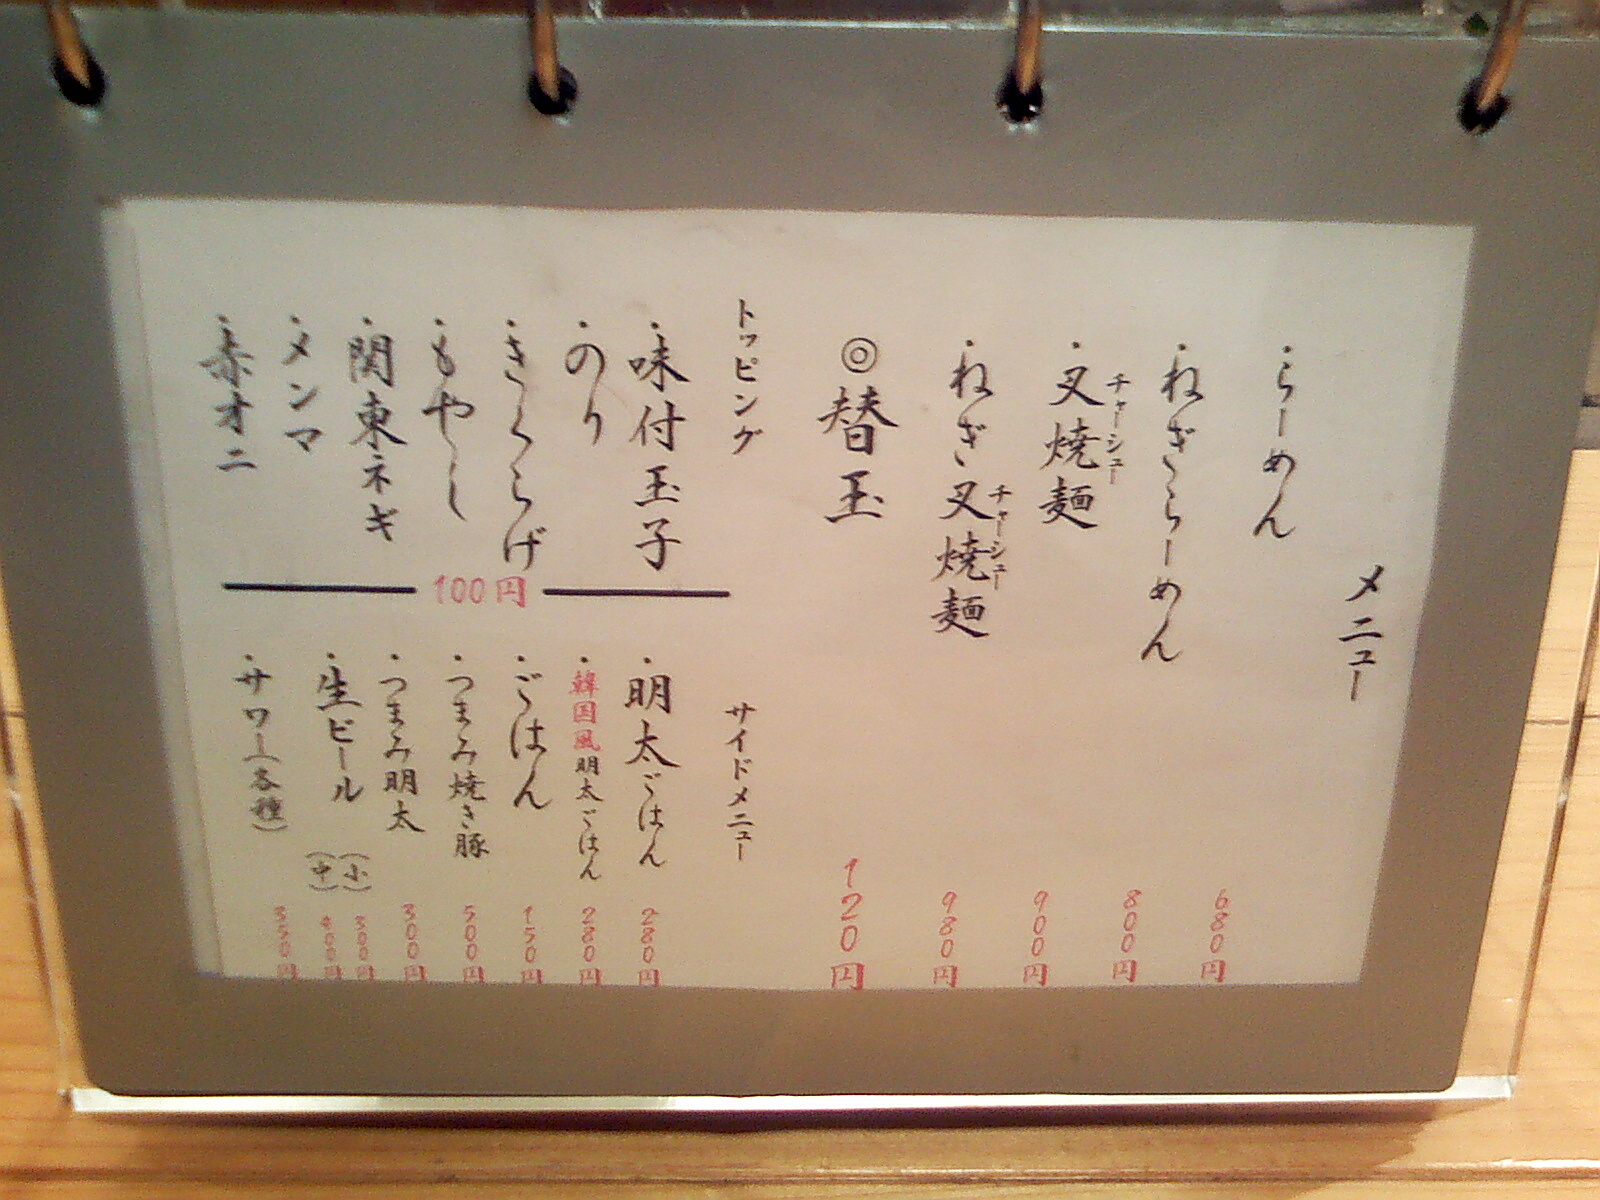 メニュー
・らーめん 680円
・ねぎらーめん 800円
・叉焼麺 900円
チャーシュー
・ねぎ叉焼麺 980円
チャーシュー
◎替玉 120円
トッピング
・味付玉子
・のり
・きくらげ
・もやし
・関東ネギ
・メンマ
・赤オニ
100円
サイドメニュー
・明太ごはん 280円
・韓国風明太ごはん 280円
・ごはん 150円
・つまみ焼き豚 500円
・つまみ明太 300円
・生ビール
(小) 300円
(中) 400円
・サワー(各種) 350円